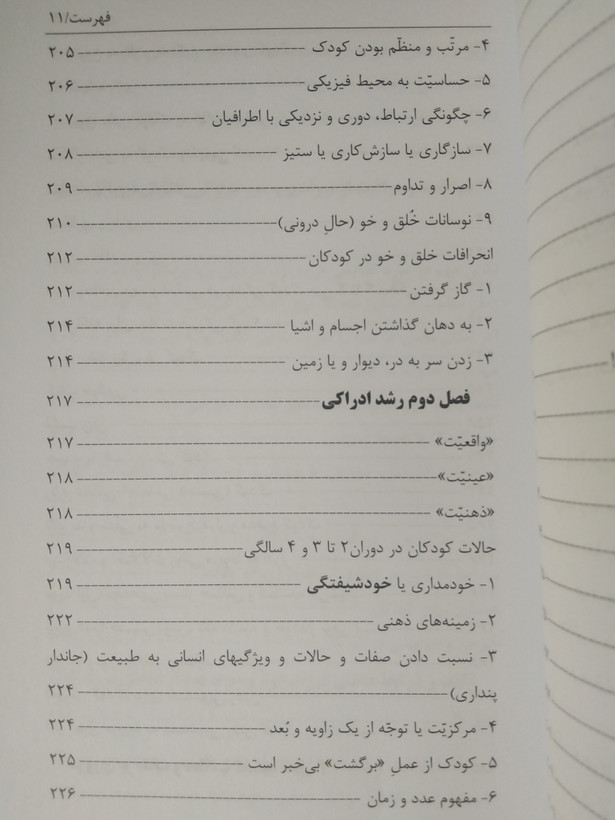 فهرست/۱۱
۴- مرتّب و منظّم بودن کودک ---------- ۲۰۵
۵- حساسیّت به محیط فیزیکی ---------- ۲۰۶
۶- چگونگی ارتباط، دوری و نزدیکی با اطرافیان ---------- ۲۰۷
۷- سازگاری یا سازش‌کاری یا ستیز ---------- ۲۰۸
۸- اصرار و تداوم ---------- ۲۰۹
۹- نوسانات خُلق و خو (حالِ درونی) ---------- ۲۱۰
انحرافات خلق و خو در کودکان ---------- ۲۱۲
۱- گاز گرفتن ---------- ۲۱۲
۲- به دهان گذاشتن اجسام و اشیا ---------- ۲۱۴
۳- زدن سر به در، دیوار و یا زمین ---------- ۲۱۴
فصل دوم رشد ادراکی ---------- ۲۱۷
«واقعیّت» ---------- ۲۱۷
«عینیّت» ---------- ۲۱۸
«ذهنیّت» ---------- ۲۱۸
حالات کودکان در دوران۲ تا ۳ و ۴ سالگی ---------- ۲۱۹
۱- خودمداری یا خودشیفتگی ---------- ۲۱۹
۲- زمینه‌های ذهنی ---------- ۲۲۲
۳- نسبت دادن صفات و حالات و ویژگیهای انسانی به طبیعت (جاندار
پنداری) ---------- ۲۲۴
۴- مرکزیّت یا توجّه از یک زاویه و بُعد ---------- ۲۲۴
۵- کودک از عملِ «برگشت» بی‌خبر است ---------- ۲۲۵
۶- مفهوم عدد و زمان ---------- ۲۲۶